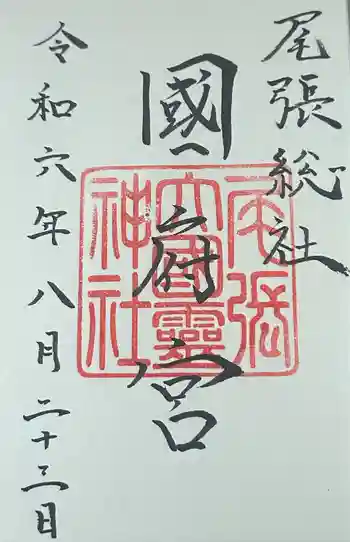 尾張総社
國府宮
令和六年八月二十三日
尾張
大國靈
神社